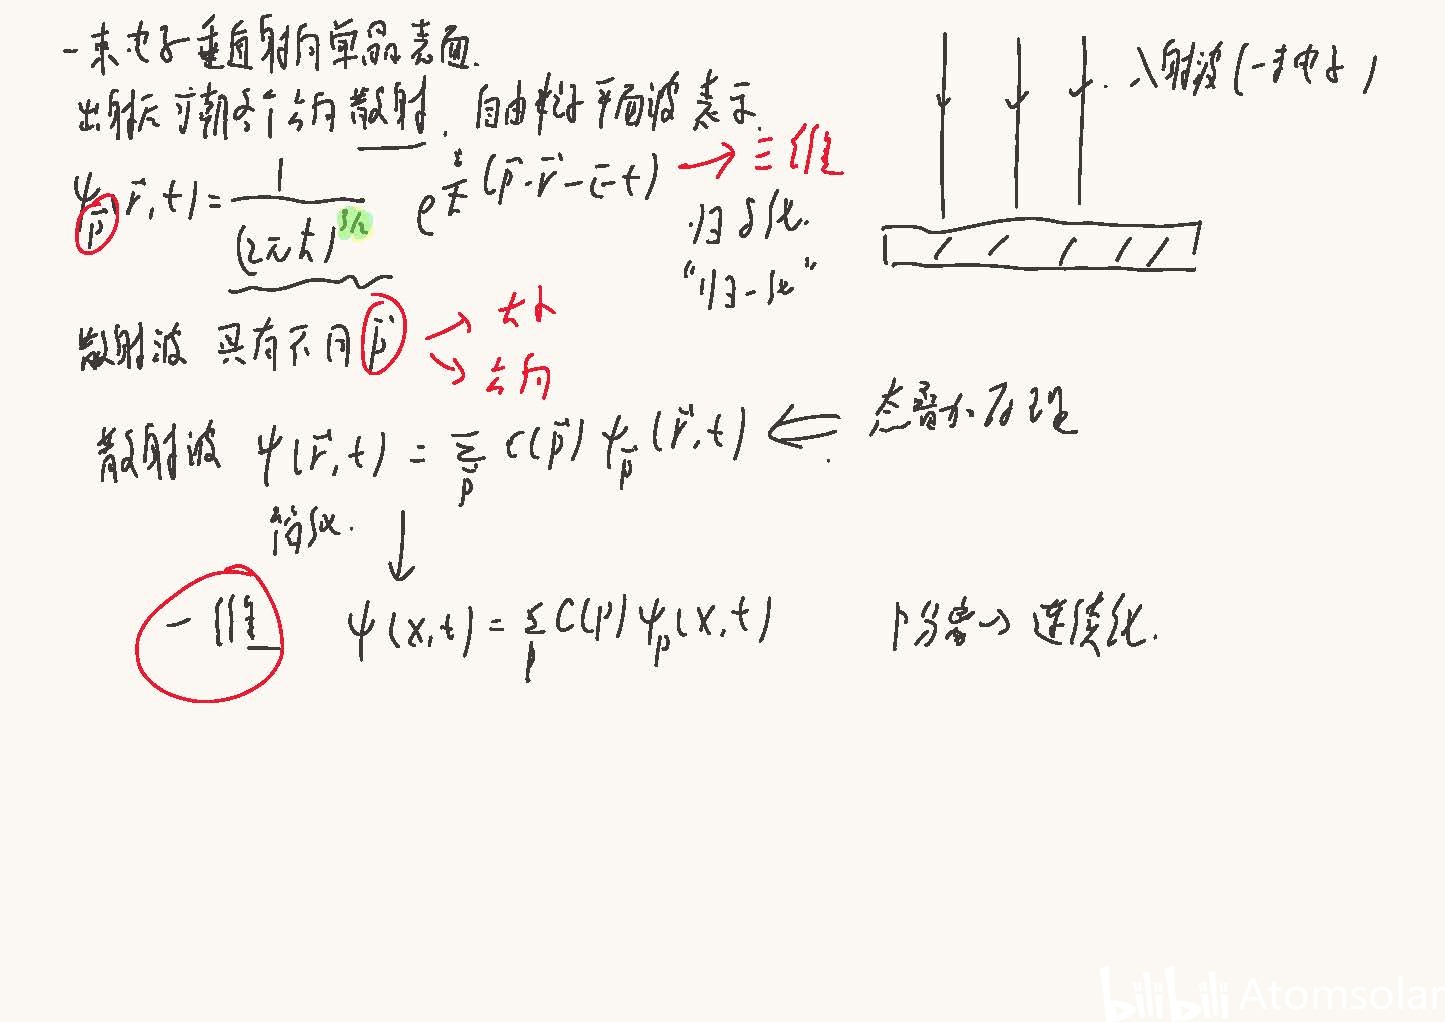 一束电子垂直射向单晶表面.
出射后可朝各个方向散射. 自由粒子平面波表示.
入射波(一束电子)
ψ_p⃗(r⃗,t)=1/(2πħ)^{3/2} e^{i/ħ(p⃗·r⃗-Et)} → 三维
归δ化.
"归一化"
散射波 具有不同 p⃗ → 大小
→ 方向
散射波 ψ(r⃗,t) = Σ_p⃗ C(p⃗) ψ_p⃗(r⃗,t) ⇐ 态叠加原理
简化.
↓
一维 ψ(x,t) = Σ_p C(p) ψ_p(x,t) p分离→连续化.
bilibili Atomsolar